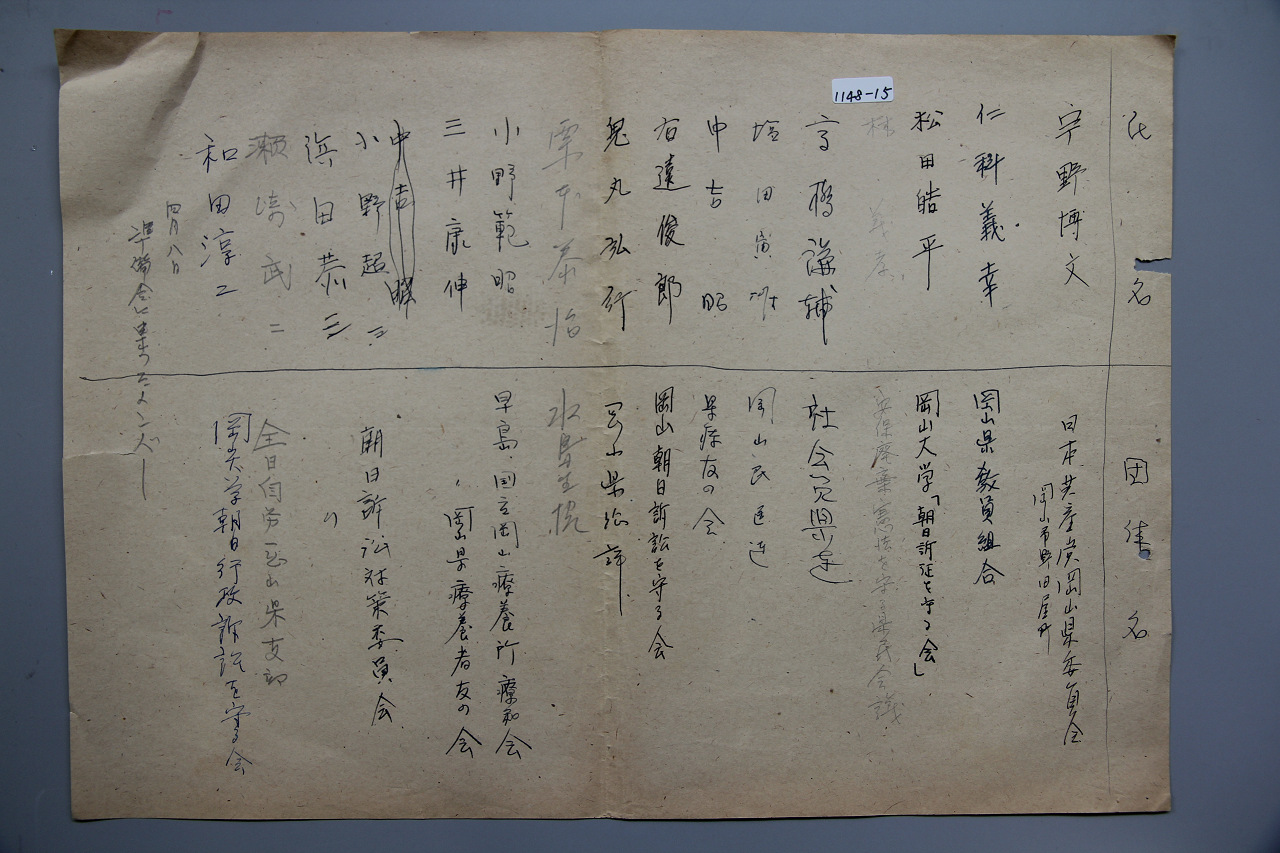 1148-15
氏名
団体名
宇野博文
日本共産党岡山県委員会
岡山市野田屋町
仁科義幸
岡山県教員組合
松田皓平
岡山大学「朝日訴訟を守る会」
林 義
安保廃棄憲法を守る県民会議
高橋謙輔
社会党県連
塩田寅
岡山民医連
中吉 昭
県療友の会
右遠俊郎
岡山朝日訴訟を守る会
鬼丸弘行
岡山県総評
栗本泰治
水島生協
小野範昭
早島 国立岡山療養所療和会
三井康伸
〃 岡山県療養者友の会
中吉 昭
小野超三
朝日訴訟対策委員会
浜田恭三
〃
瀬崎武二
全日自労岡山県支部
和田淳二
岡大学朝日行政訴訟を守る会
四月八日
準備会に集ったメンバー